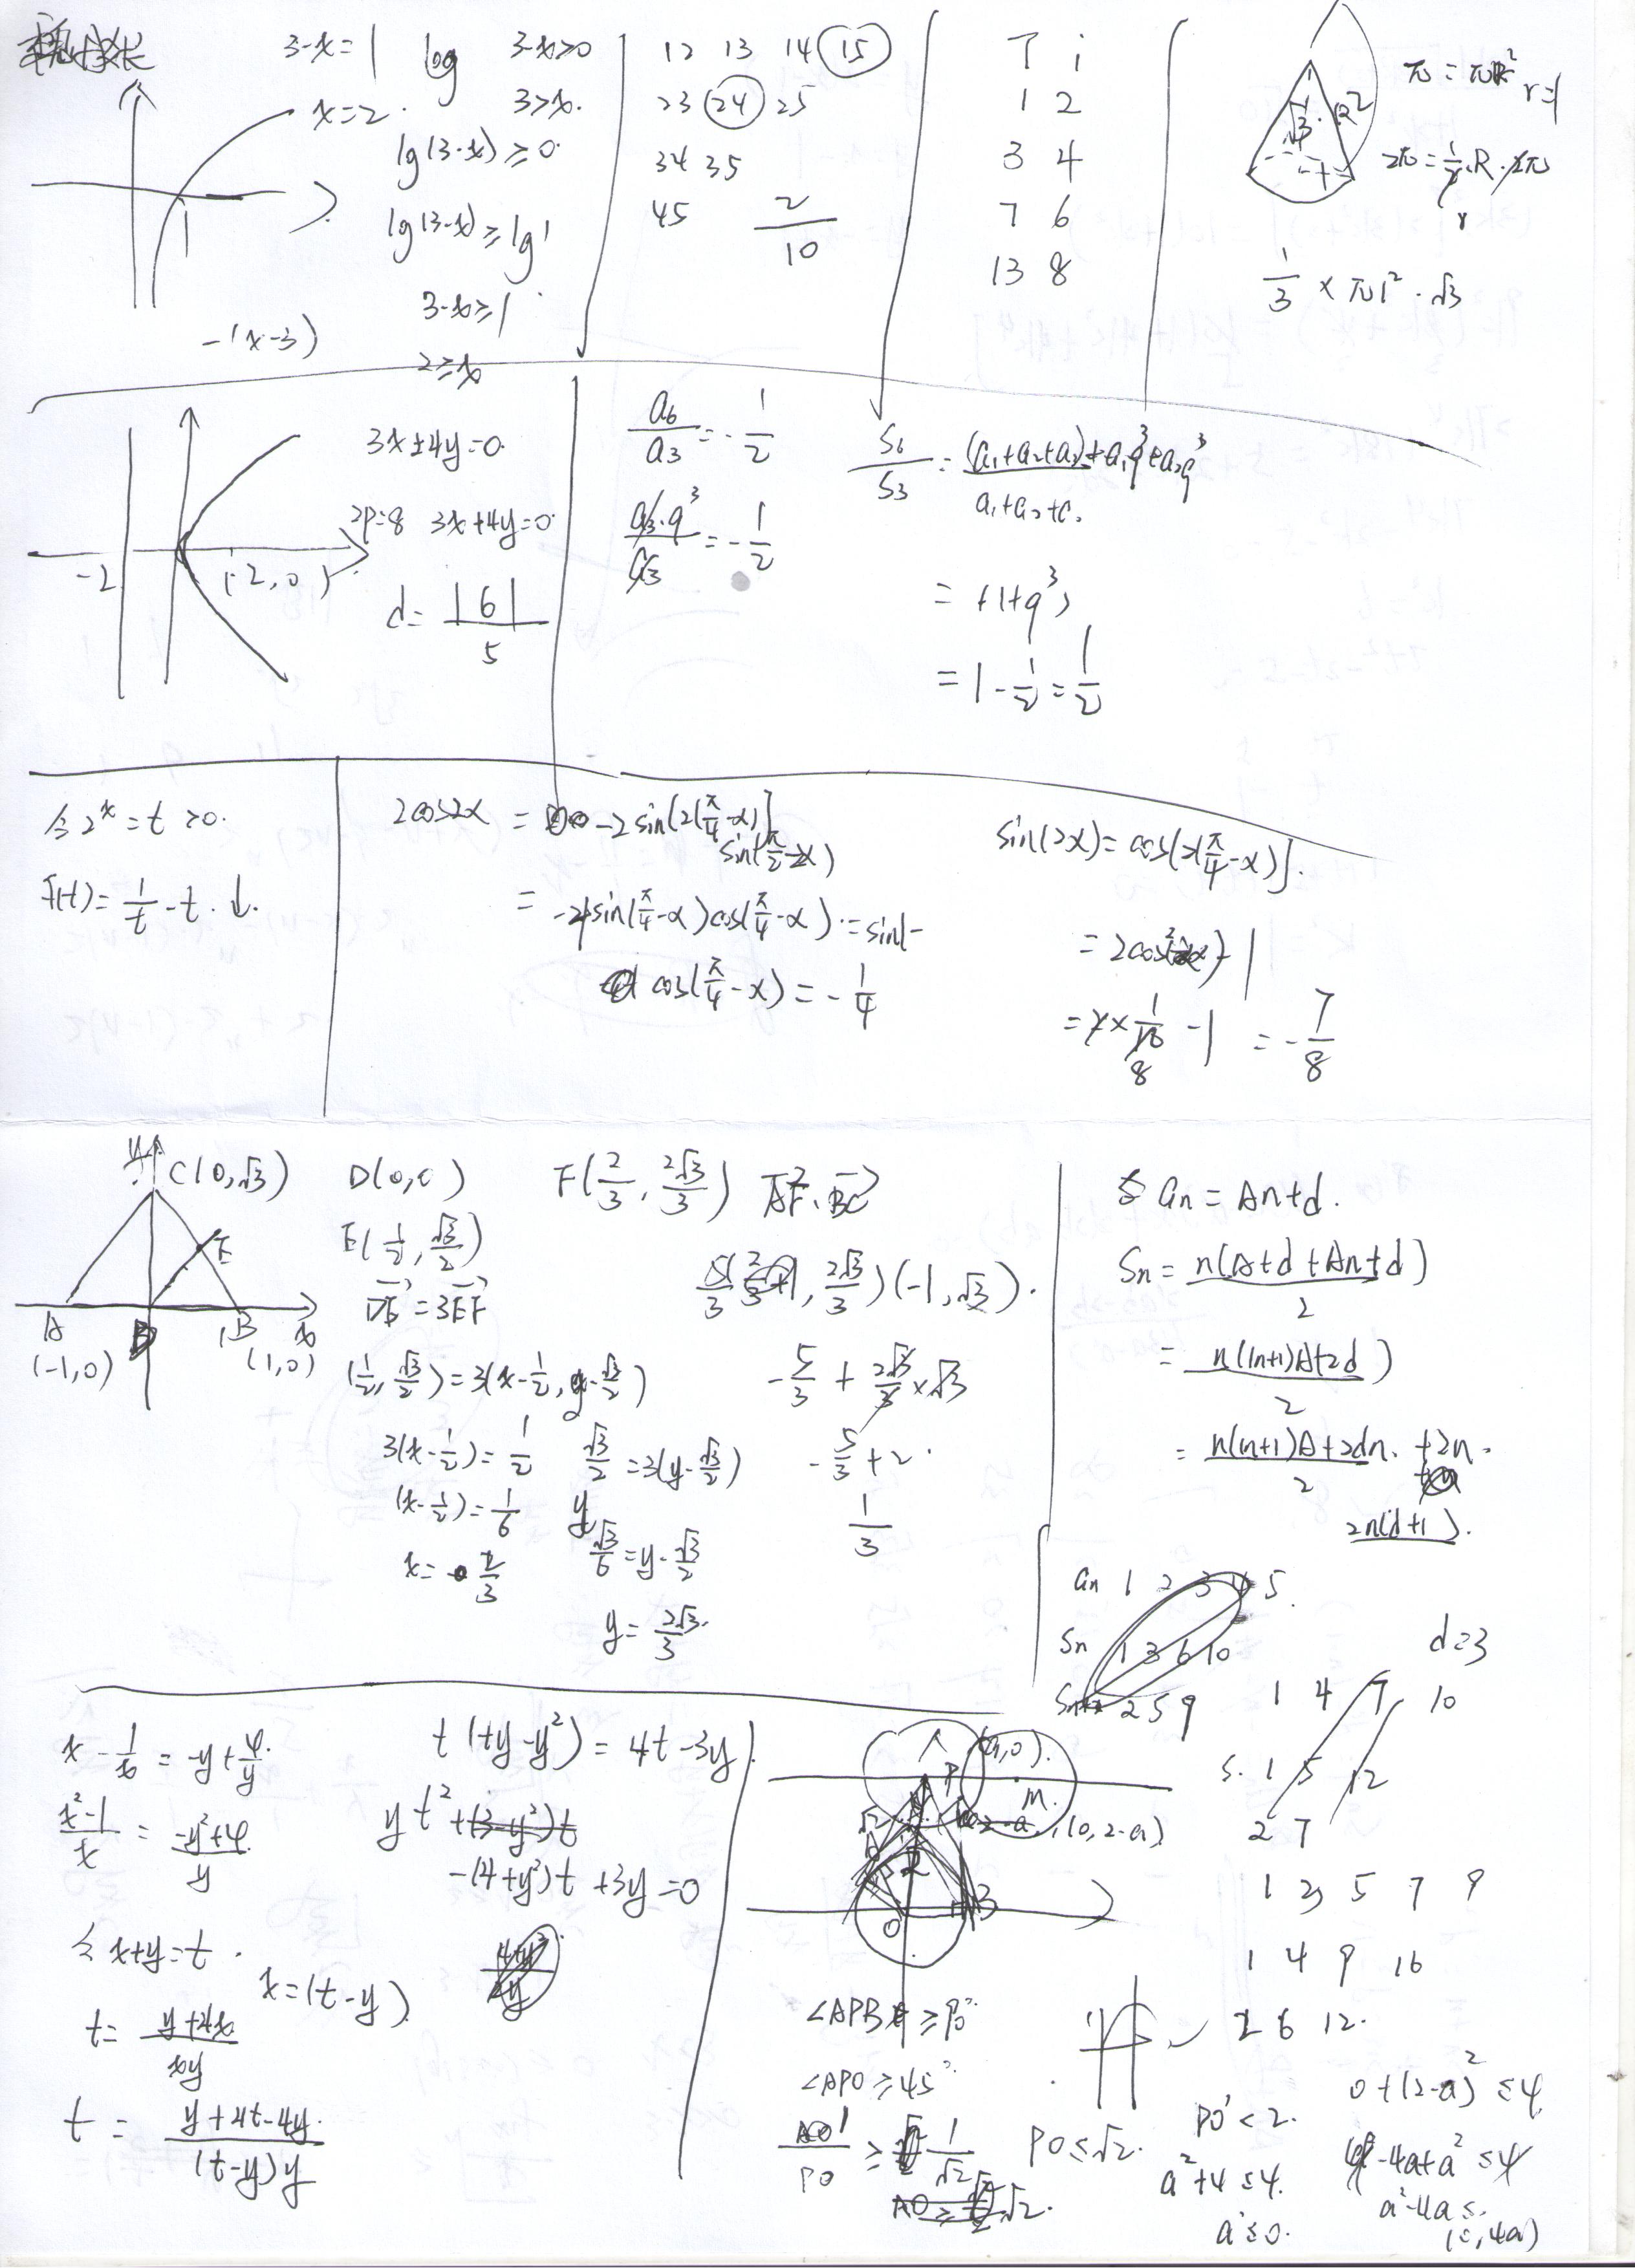 3-x=1
x=2.
1
-(x-3)
log 3-x>0
3>x.
lg(3-x)≥0.
lg(3-x)≥lg1
3-x≥1
2≥x
12 13 14 15
23 24 25
34 35
45
2/10
T i
1 2
3 4
7 6
13 8
π=πR²
r=1
2π=1/2·R·2π
1/3 × π1²·√3
-2
(2,0)
3x±4y=0.
2p=8 3x+4y=0.
d=|6|/5
a₆/a₃=-1/2
a₃·q³/a₃=-1/2
S₆/S₃=(a₁+a₂+a₃)+a₁q³+a₂q³/a₁+a₂+a.
=(1+q³)
=1-1/2=1/2
令2^x=t>0.
f(t)=1/t-t.↓.
2cos2α=-2sin[2(π/4-α)]
sin(π/2-2α)
=-4sin(π/4-α)cos(π/4-α).=sin(-
cos(π/4-α)=-1/4
sin(2α)=cos[2(π/4-α)].
=2cos²-1
=2×1/16-1=-7/8
y C(0,√3) D(0,0)
A B x
(-1,0) (1,0)
E
E(1/2,√3/2)
DE=3EF
(1/2,√3/2)=3(x-1/2,y-√3/2)
3(x-1/2)=1/2 √3/2=3(y-√3/2)
(x-1/2)=1/6 y
x=2/3 √3/6=y-√3/2
y=2√3/3.
F(2/3,2√3/3) AF·BC
(2/3+1,2√3/3)(-1,√3).
-5/3+2√3/3×√3
-5/3+2.
1/3
an=An+d.
Sn=n(A+d+An+d)/2
=n((n+1)A+2d)/2
=n(n+1)A+2dn./2 +2n.
2n(d+1).
an 1 2 3 4 5.
Sn 1 3 6 10 d=3
2 5 9 1 4 7 10
S. 1 5 12
2 7
1 3 5 7 9
1 4 9 16
2 6 12.
x-1/x=-y+4/y.
x²-1/x=-y²+4/y
令x+y=t.
x=(t-y)
t=y+4x/xy
t=y+4t-4y/(t-y)y
t(ty-y²)=4t-3y
yt²+(3-y²)t
-(4+y²)t+3y=0
4+y²/2y
(a,0).
P
M.
(0,2-a)
A
B
O
∠APB≥90°.
∠APO≥45°.
1/PO≥1/√2
PO≤√2.
PO<2.
a²+4≤4.
a²≤0.
0+(2-a)²≤4
4-4a+a²≤4
a²-4a≤